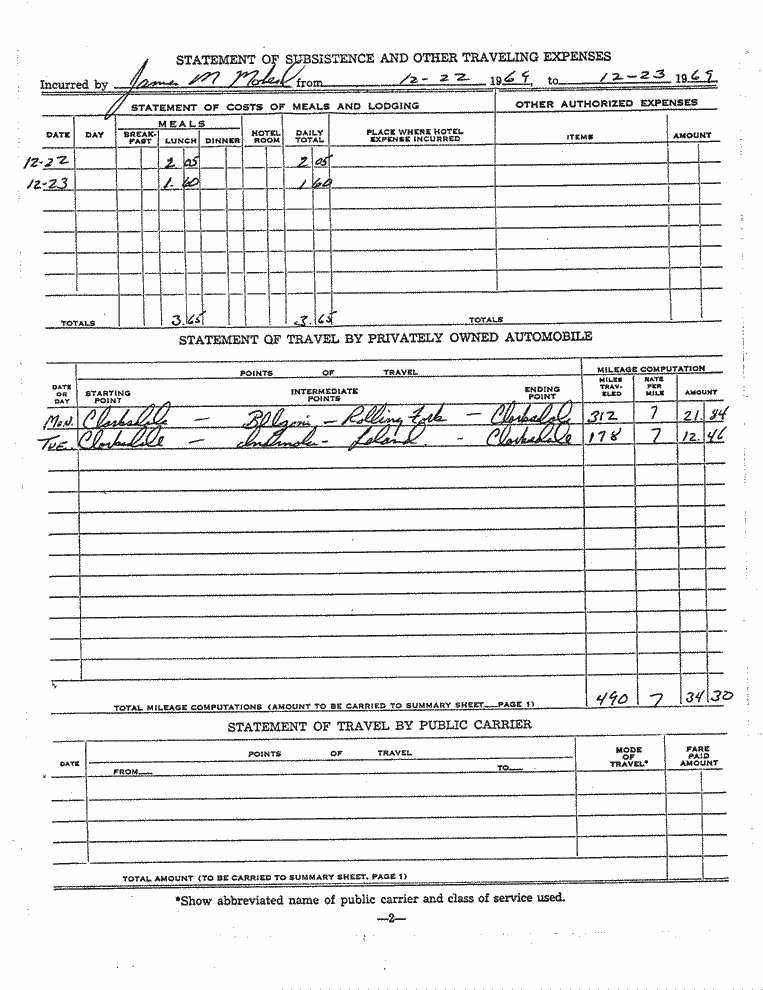 STATEMENT OF SUBSISTENCE AND OTHER TRAVELING EXPENSES
Incurred by James M from 12-22 1969, to 12-23 1969
STATEMENT OF COSTS OF MEALS AND LODGING OTHER AUTHORIZED EXPENSES
DATE DAY MEALS BREAK-FAST LUNCH DINNER HOTEL ROOM DAILY TOTAL PLACE WHERE HOTEL EXPENSE INCURRED ITEMS AMOUNT
12-22 2 05 2 05
12-23 1.60 1 60
TOTALS 3.65 3.65 TOTALS
STATEMENT OF TRAVEL BY PRIVATELY OWNED AUTOMOBILE
POINTS OF TRAVEL MILEAGE COMPUTATION
DATE OR DAY STARTING POINT INTERMEDIATE POINTS ENDING POINT MILES TRAV-ELED RATE PER MILE AMOUNT
Mon. Clarksdale — Belzoni — Rolling Fork — Clarksdale 312 7 21.84
Tue. Clarksdale — Indianola - Leland - Clarksdale 178 7 12.46
TOTAL MILEAGE COMPUTATIONS (AMOUNT TO BE CARRIED TO SUMMARY SHEET—PAGE 1) 490 7 34 30
STATEMENT OF TRAVEL BY PUBLIC CARRIER
DATE POINTS OF TRAVEL MODE OF TRAVEL* FARE PAID AMOUNT
FROM TO
TOTAL AMOUNT (TO BE CARRIED TO SUMMARY SHEET, PAGE 1)
*Show abbreviated name of public carrier and class of service used.
—2—